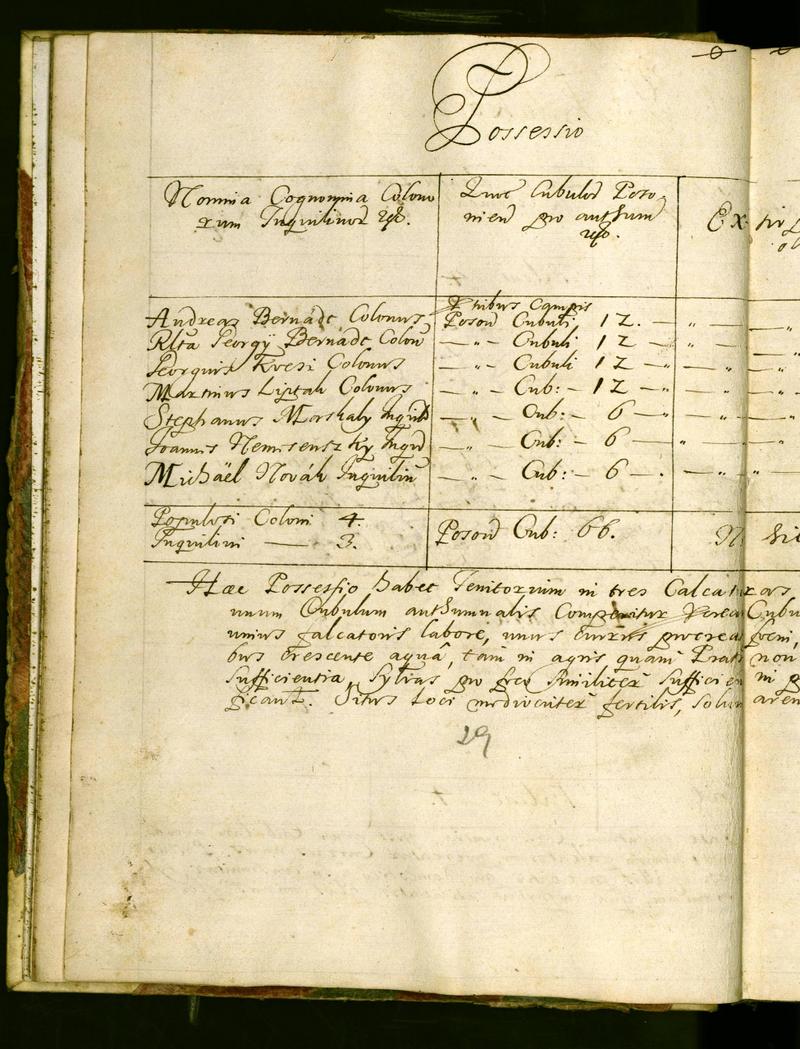 Possessio
Nomina Cognomina Colono
rum Inquilinorū
Quot Cubulor Poso
nien pro authum
Ex stir
Andreas Bernadt Colonus
Poson Cubuli 12.
Georgÿ Bernadt Colon
— " — Cubuli 12 —
Colonus
— " — Cubuli 12 —
Martinus Liptak Colonus
— " — Cub: — 12 —
Stephanus Morskaly Inquil
— " — Cub: — 6 —
Joannis Inquil
— " — Cub: — 6 —
Michäel Novák Inquilin
— " — Cub: — 6 —
Populosi Coloni 4.
Inquilini — 3.
Poson Cub: 66.
Hæc Possessio habet Territorium in tres Calcaturas
unum Cubulum authumnalis Computitur Cubu
unius falcatoris labore, unus currus procreat foeni,
bus crescente aquâ, tam in agris quam Pratis non
sufficientia, Sylvas pro foco similiter sufficien in
Situs Loci mediocriter fertilis, Solum aren
29